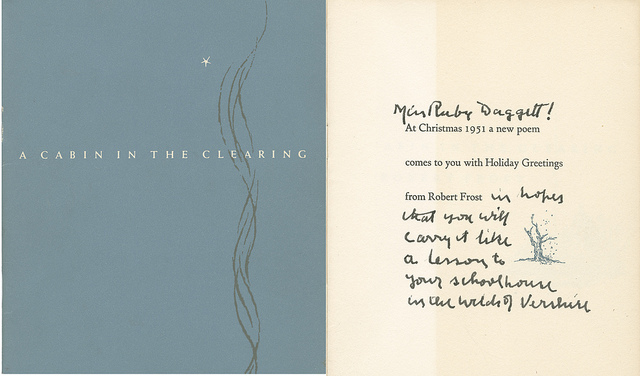 A CABIN IN THE CLEARING
Miss Ruby Daggett!
At Christmas 1951 a new poem
comes to you with Holiday Greetings
from Robert Frost in hopes
that you will
carry it like
a lesson to
your schoolhouse
in the wilds of Vershire